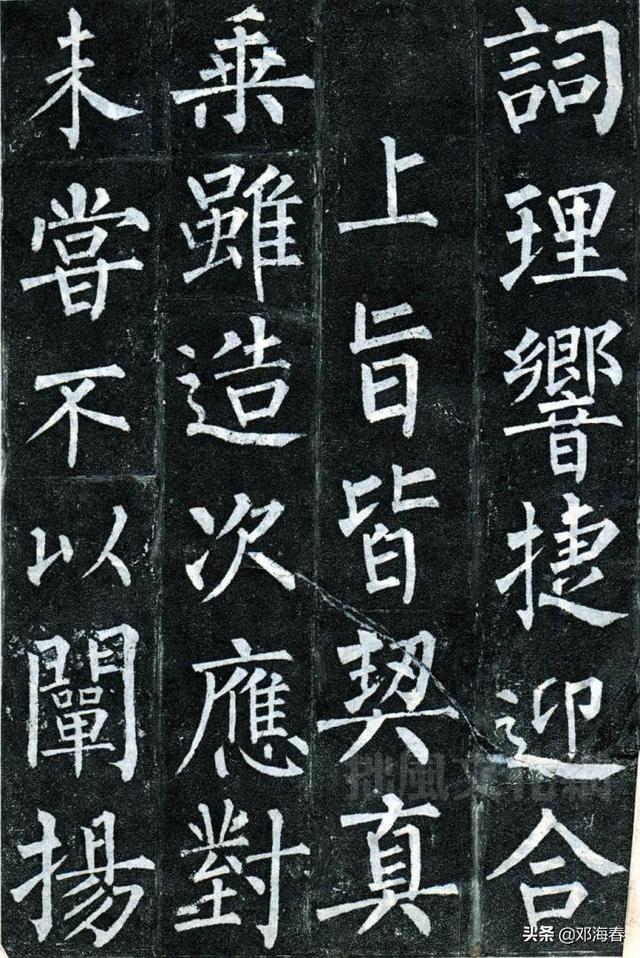 詞理響捷迎合
上旨皆契真
乘雖造次應對
未嘗不以闡揚
头条 @邓海春